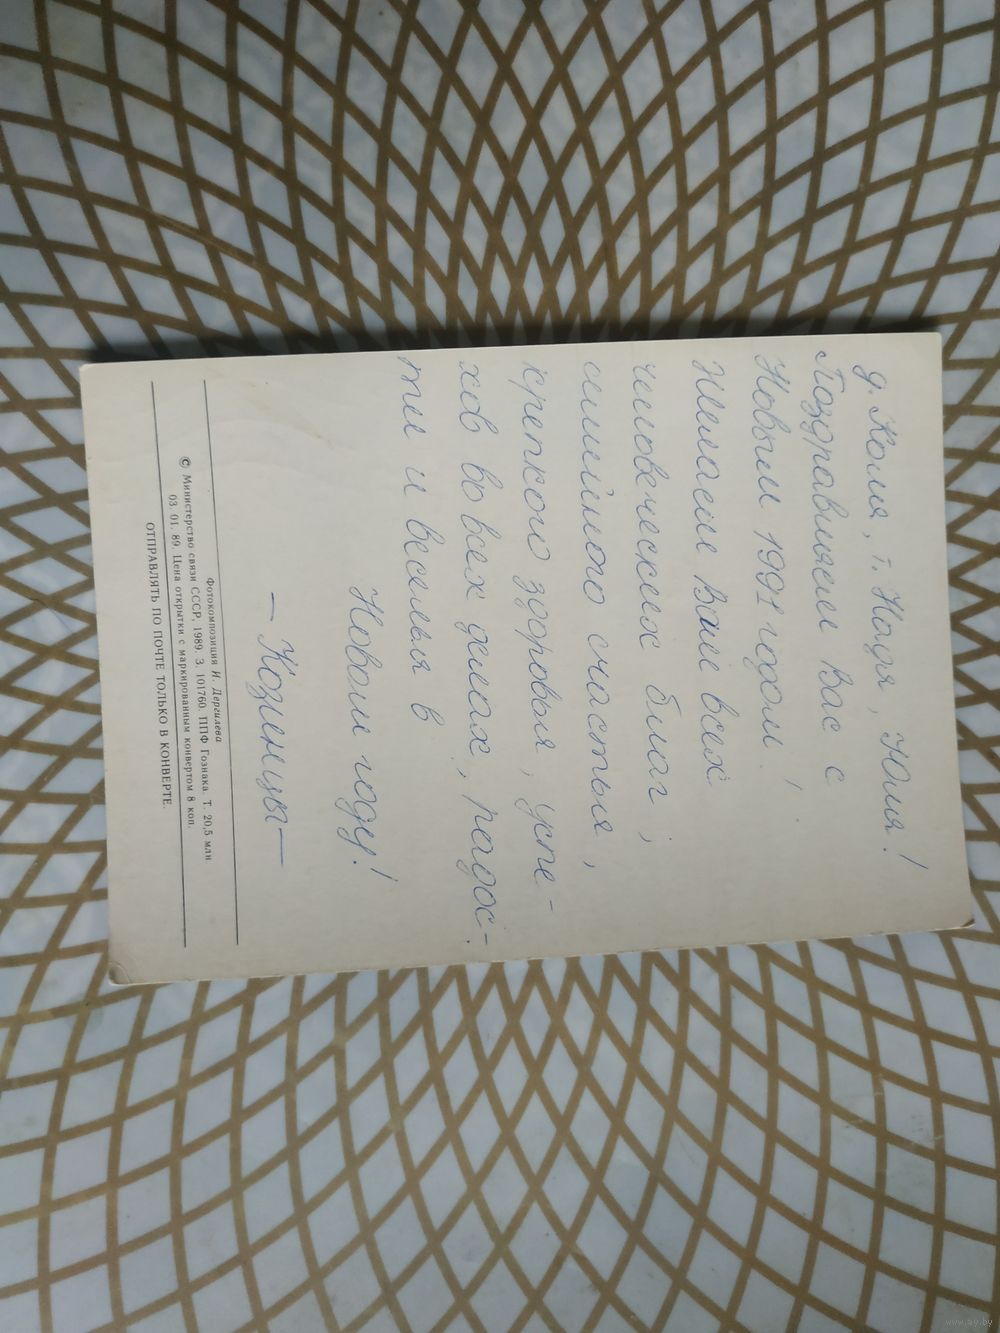 д. Коля, т. Надя, Юля!
Поздравляем Вас с
Новым 1991 годом!
Желаем Вам всех
человеческих благ,
семейного счастья,
крепкого здоровья, успе-
хов во всех делах, радос-
тей и веселья в
Новом году!
— Козленцы —
Фотокомпозиция И. Дергилева
© Министерство связи СССР, 1989. З. 101760. ППФ Гознака. Т. 20,5 млн.
03. 01. 89. Цена открытки с маркированным конвертом 8 коп.
ОТПРАВЛЯТЬ ПО ПОЧТЕ ТОЛЬКО В КОНВЕРТЕ.
www.ay.by